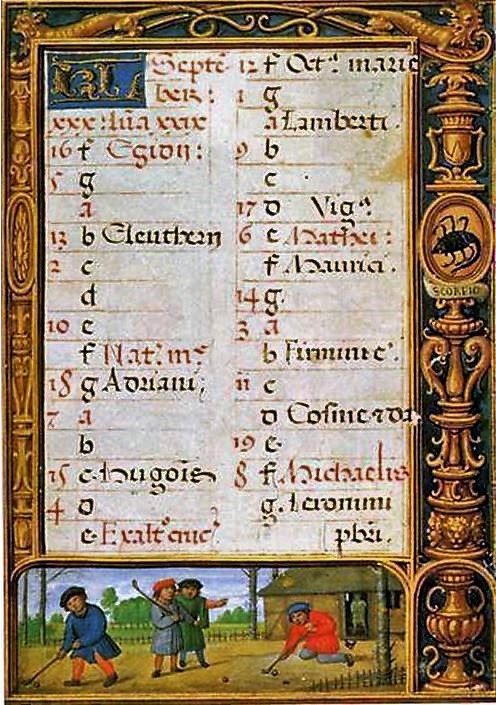 KL Septē
ber:
xxx: lūa xxix
16 f Egidij:
5 g
a
13 b Eleutherij
2 c
d
10 e
f Nat: mᵉ
18 g Adriani;
7 a
b
15 c
4 d
e Exalt° cruc'
12 f Oct: marie
1 g
a Lamberti.
9 b
c
17 d Vigª.
6 e Mathei:
f Maurici.
14 g.
3 a
b Firmini e'.
11 c
d Cosme
19 e
8 f Michaelis
g. Ieronimi
pbri.
SCORPIO